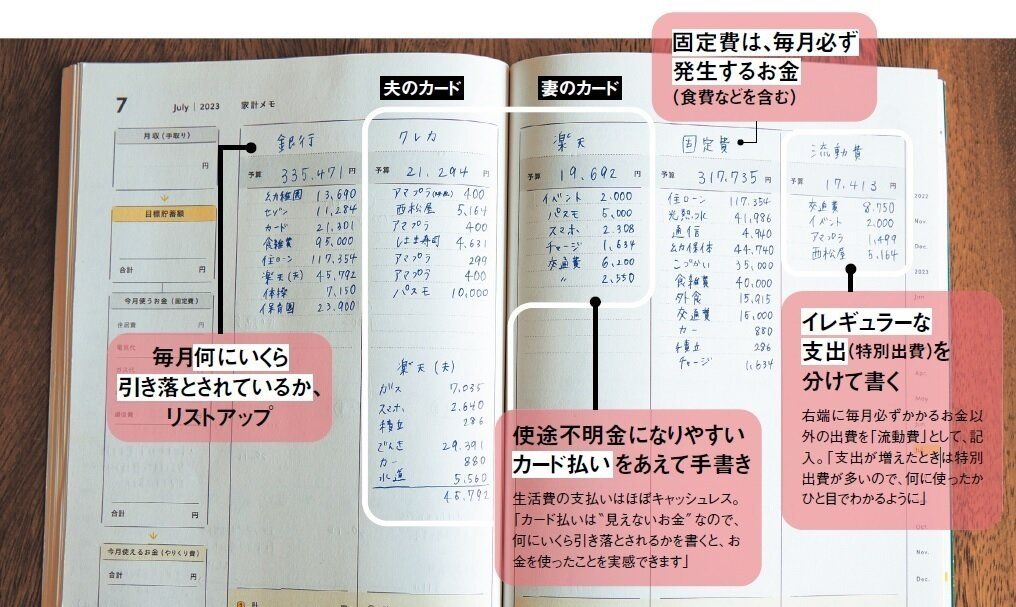 夫のカード
妻のカード
固定費は、毎月必ず
発生するお金
(食費などを含む)
7 July | 2023 家計メモ
月収(手取り)
円
目標貯蓄額
合計 円
今月使うお金(固定費)
住居費 円
合計 円
今月使えるお金(やりくり費)
合計 円
銀行
予算 335,471 円
幼稚園 13,690
セゾン 11,284
カード 21,301
食雑費 95,000
住ローン 117,354
楽天(夫) 45,792
体操 7,150
保育園 23,900
クレカ
予算 21,294 円
アマプラ 400
西松屋 5,164
アマプラ 400
はま寿司 4,631
アマプラ 299
アマプラ 400
パスモ 10,000
楽天(夫)
ガス 7,035
スマホ 2,640
積立 286
でんき 29,391
カー 880
水道 5,560
45,792
楽天
予算 19,692 円
イベント 2,000
パスモ 5,000
スマホ 2,308
チャージ 1,634
交通費 6,200
〃 2,550
固定費
予算 317,735 円
住ローン 117,354
光熱水 41,986
通信 4,940
幼保体 44,740
こづかい 35,000
食雑費 40,000
外食 15,915
交通費 15,000
カー 880
積立 286
チャージ 1,634
流動費
予算 17,413 円
交通費 8,750
イベント 2,000
アマプラ 1,499
西松屋 5,164
2022
Nov.
Dec.
2023
Jun
Apr.
May
Okt.
Nov.
Dec.
毎月何にいくら
引き落とされているか、
リストアップ
使途不明金になりやすい
カード払いをあえて手書き
生活費の支払いはほぼキャッシュレス。
「カード払いは“見えないお金”なので、
何にいくら引き落とされるかを書くと、お
金を使ったことを実感できます」
イレギュラーな
支出(特別出費)を
分けて書く
右端に毎月必ずかかるお金以
外の出費を「流動費」として、記
入。「支出が増えたときは特別
出費が多いので、何に使ったか
ひと目でわかるように」